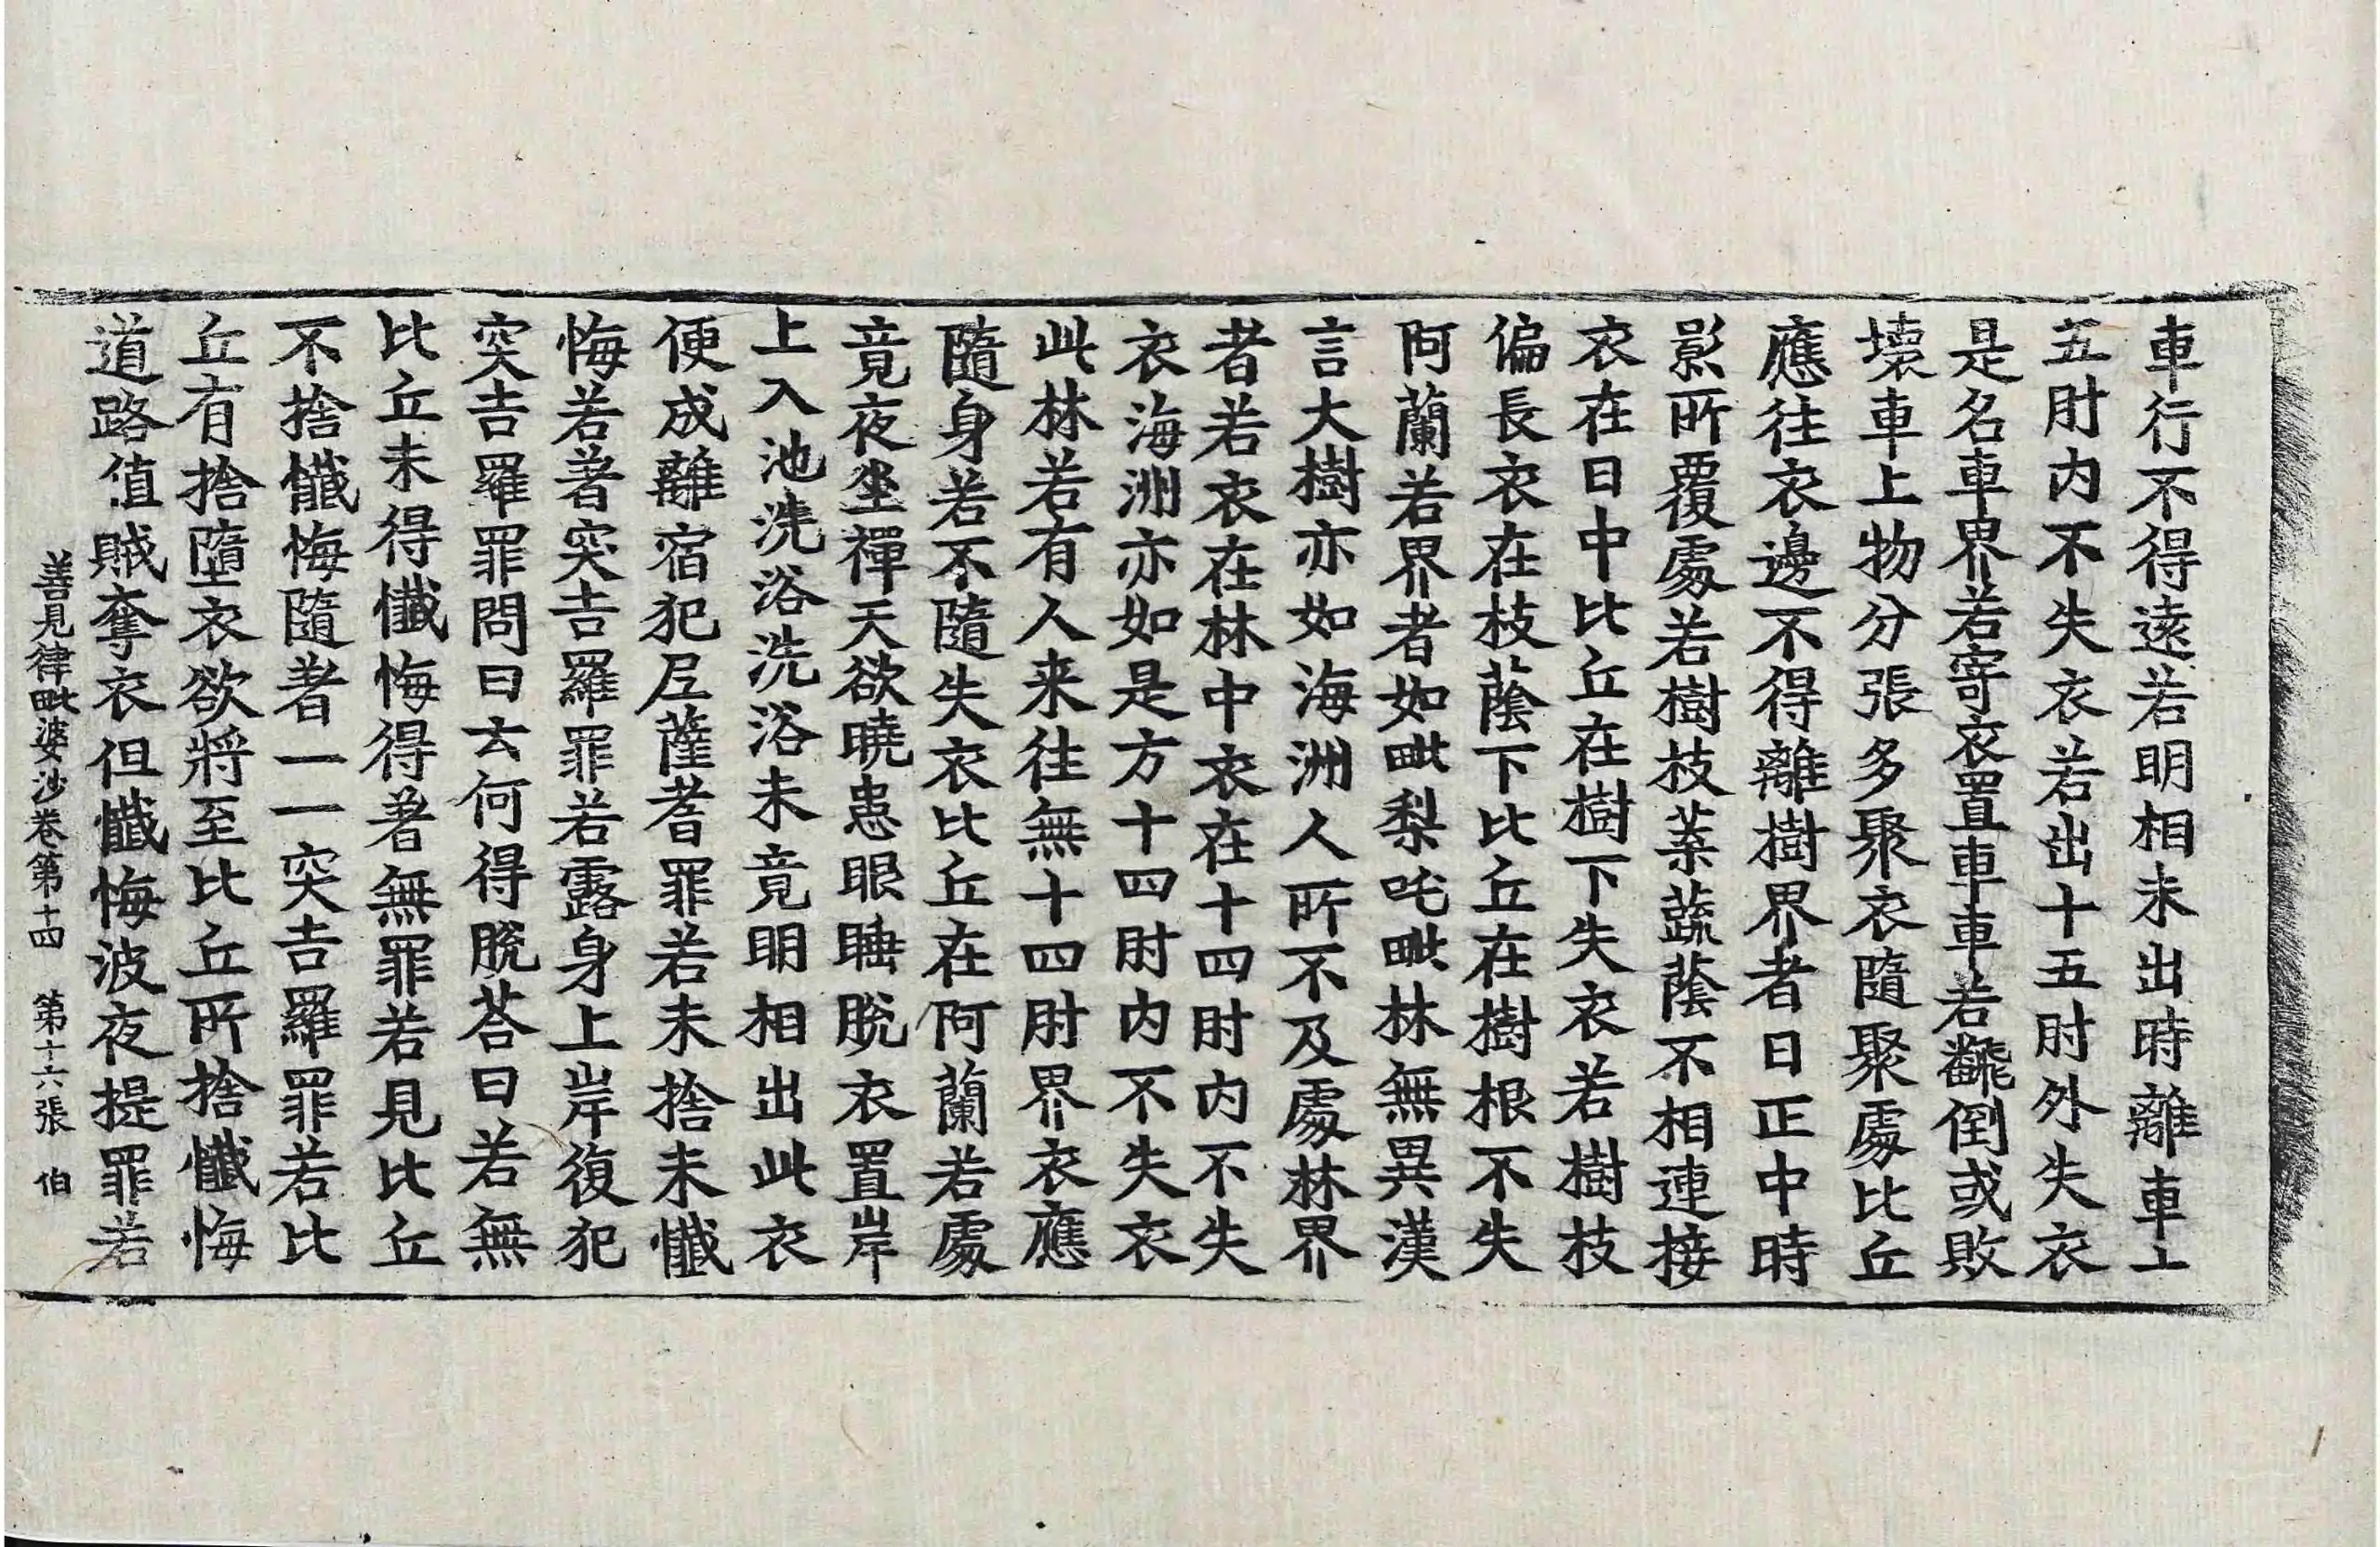 車行不得遠若明相未出時離車十
五肘内不失衣若出十五肘外失衣
是名車界若寄衣置車車若飜倒或敗
壞車上物分張多聚衣隨聚處比丘
應往衣邊不得離樹界者日正中時
影所覆處若樹枝葉蔬蔭不相連接
衣在日中比丘在樹下失衣若樹枝
偏長衣在枝蔭下比丘在樹根不失
阿蘭若界者如毗梨吒毗林無異漢
言大樹亦如海洲人所不及處林界
者若衣在林中衣在十四肘内不失
衣海洲亦如是方十四肘内不失衣
此林若有人来往無十四肘界衣應
隨身若不隨失衣比丘在阿蘭若處
竟夜坐禪天欲曉患眼睡脫衣置岸
上入池洗浴洗浴未竟明相出此衣
便成離宿犯尼薩耆罪若未捨未懺
悔若著突吉羅罪若露身上岸復犯
突吉羅罪問曰云何得脫荅曰若無
比丘未得懺悔得著無罪若見比丘
不捨懺悔隨著一一突吉羅罪若比
丘有捨墮衣欲將至比丘所捨懺悔
道路值賊奪衣但懺悔波夜提罪若
善見律毗婆沙卷第十四 第十六張 伯